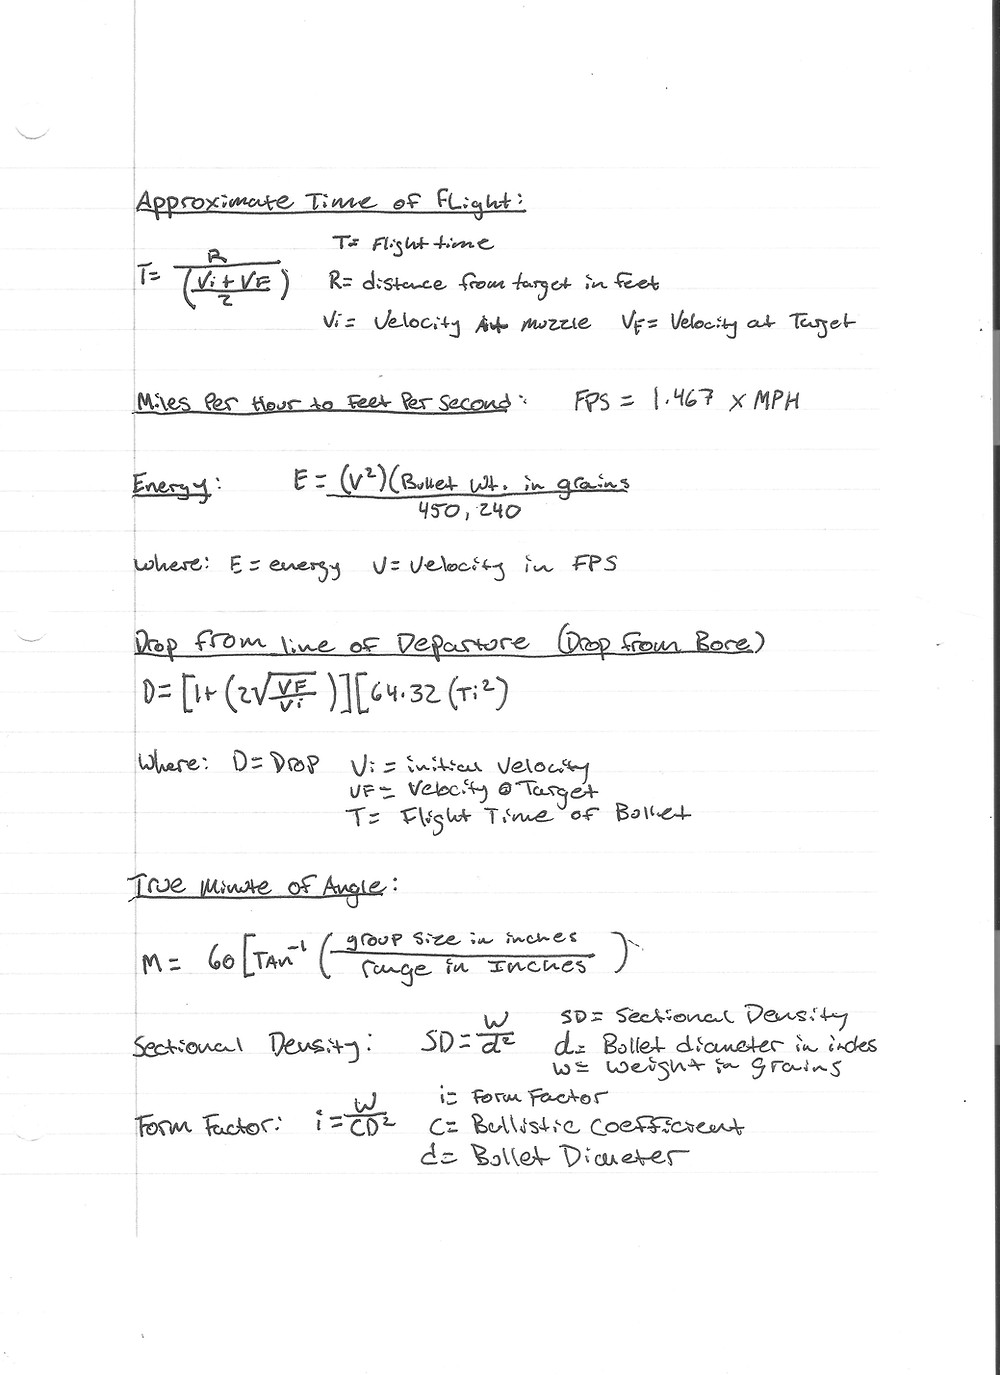 Approximate Time of Flight:
T= R/((Vi + VF)/2) T= Flight time
R= distance from target in feet
Vi = Velocity At muzzle VF = Velocity at Target
Miles Per Hour to Feet Per Second: FPS = 1.467 x MPH
Energy: E = (V²)(Bullet Wt. in grains / 450,240
where: E = energy V = Velocity in FPS
Drop from line of Departure (Drop from Bore)
D= [1+ (2√(VF/Vi))][64.32 (Ti²)
Where: D= Drop Vi = initial velocity
VF= Velocity @ Target
T= Flight Time of Bullet
True Minute of Angle:
M= 60 [TAN⁻¹ (group size in inches / range in Inches)
Sectional Density: SD= W/d² SD= Sectional Density
d= Bullet diameter in inches
w= weight in grains
Form Factor: i = W/CD² i= Form Factor
C= Ballistic Coefficient
d= Bullet Diameter